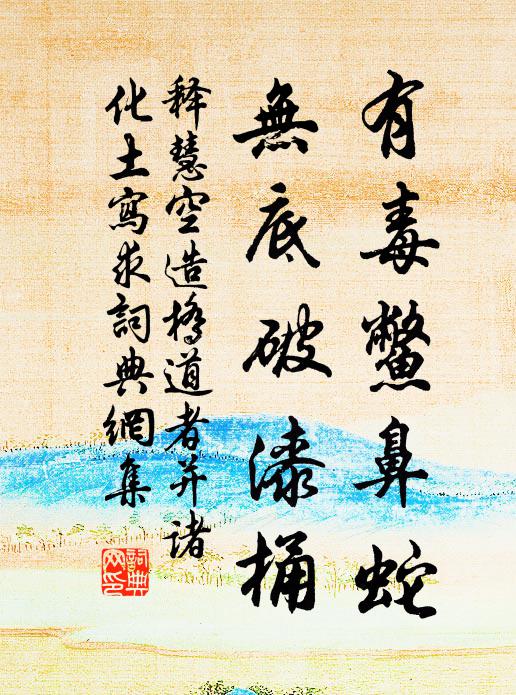 有毒鱉鼻蛇
無底破漆桶
释慧空造橋道者并诸
化士寫求詞典網集
詞典网印